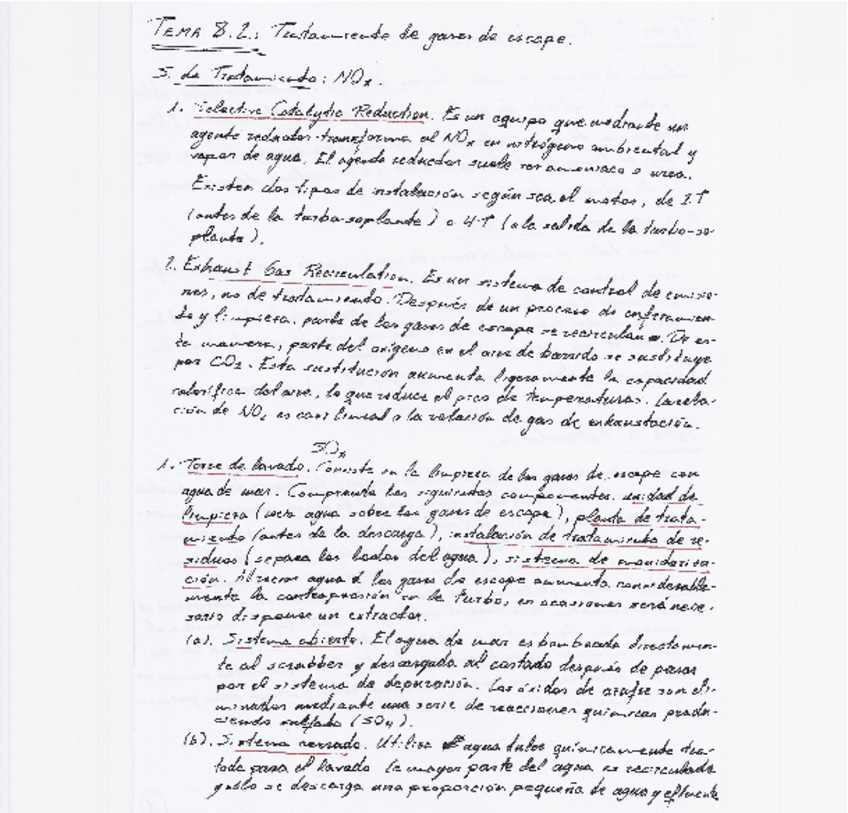 TEMA 8.2.: Tratamiento de gases de escape.
S. de Tratamiento: NOx.
1. Selective Catalytic Reduction. Es un equipo que mediante un
agente reductor transforma el NOx en nitrógeno ambiental y
vapor de agua. El agente reductor suele ser amoniaco o urea.
Existen dos tipos de instalación según sea el motor, de 2T
(antes de la turbo-soplante) o 4T (a la salida de la turbo-so-
plante).
2. Exhaust Gas Recirculation. Es un sistema de control de emisio-
nes, no de tratamiento. Después de un proceso de enfriamien-
to y limpieza, parte de los gases de escape se recirculan. De es-
ta manera, parte del oxígeno en el aire de barrido se sustituye
por CO2. Esta sustitución aumenta ligeramente la capacidad
calorífica del aire, lo que reduce el pico de temperaturas. La
ción de NOx es casi lineal a la relación de gas de exhaustación.
SOx
1. Torre de lavado. Consiste en la limpieza de los gases de escape con
agua de mar. Comprende los siguientes componentes: unidad de
limpieza ( agua sobre los gases de escape), planta de trata-
miento (antes de la descarga), instalación de tratamiento de re-
siduos (separa los lodos del agua), sistema de monitoriza-
ción. Al agua a los gases de escape aumenta considerable-
mente la contrapresión en la turbo, en ocasiones será nece-
sario disponer un extractor.
(a). Sistema abierto. El agua de mar es bombeada directamen-
te al scrubber y descargada al costado después de pasar
por el sistema de depuración. Los óxidos de azufre son eli-
minados mediante una serie de reacciones químicas produ-
ciendo sulfato (SO4).
(b). Sistema cerrado. Utiliza agua dulce químicamente tra-
tada para el lavado. La mayor parte del agua es recirculada
y solo se descarga una proporción pequeña de agua y efluente